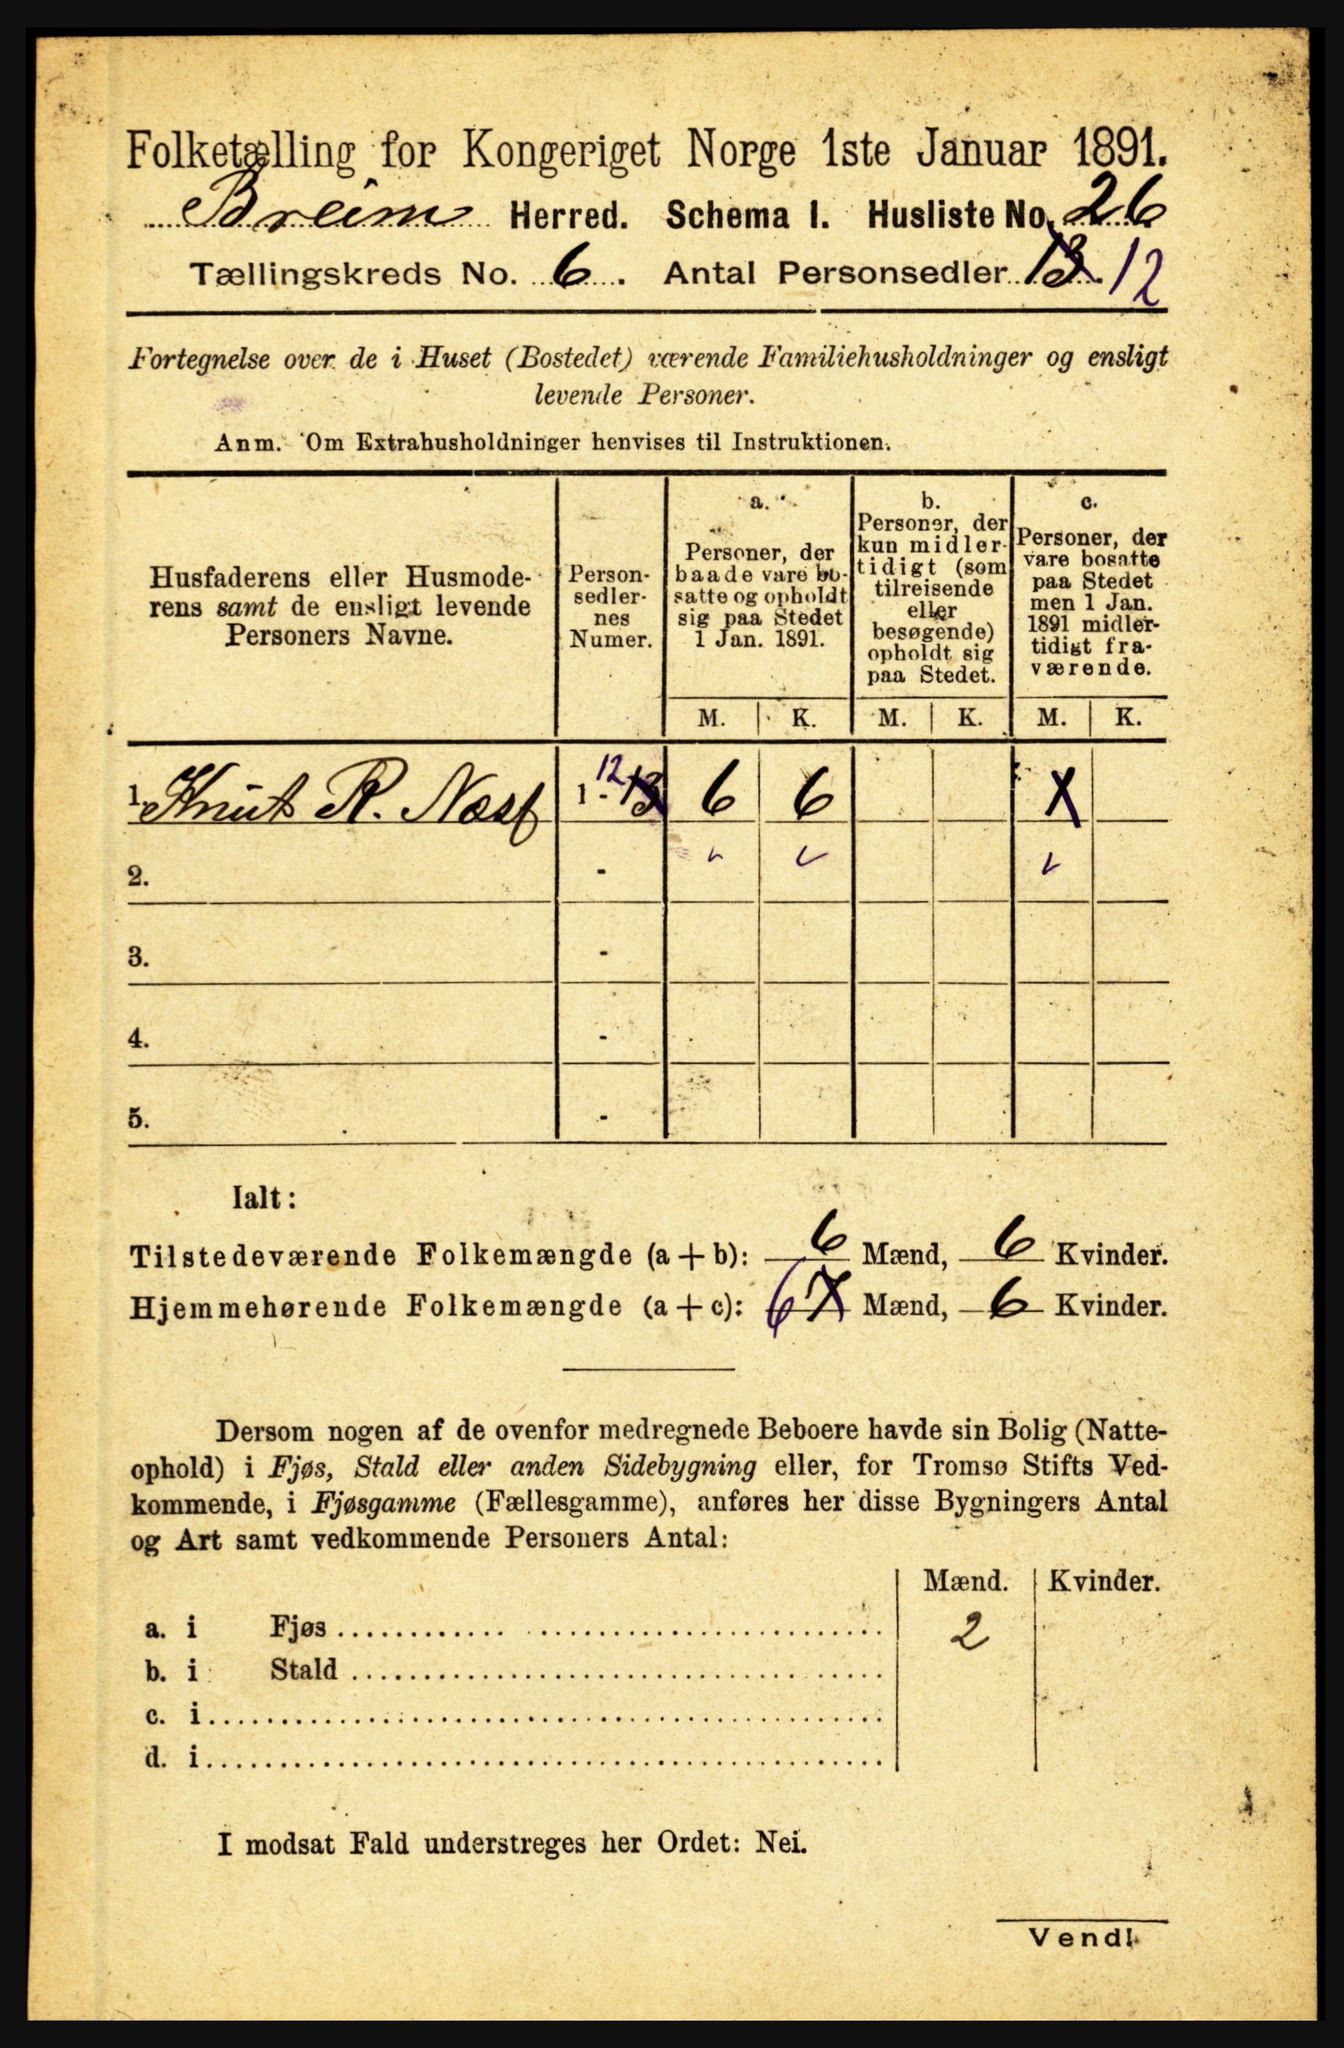 Folketælling for Kongeriget Norge 1ste Januar 1891.
Breim Herred. Schema I. Husliste No. 26
Tællingskreds No. 6. Antal Personsedler 13. 12
Fortegnelse over de i Huset (Bostedet) værende Familiehusholdninger og ensligt
levende Personer.
Anm. Om Extrahusholdninger henvises til Instruktionen.
Husfaderens eller Husmode-
rens samt de ensligt levende
Personers Navne.
Person-
sedler-
nes
Numer.
a.
Personer, der
baade vare bo-
satte og opholdt
sig paa Stedet
1 Jan. 1891.
b.
Personer, der
kun midler-
tidigt (som
tilreisende
eller
besøgende)
opholdt sig
paa Stedet.
c.
Personer, der
vare bosatte
paa Stedet
men 1 Jan.
1891 midler-
tidigt fra-
værende.
M. K. M. K. M. K.
1. Knut R. Næss 1 - 13 12 6 6 1
2. -
3. -
4. -
5. -
Ialt:
Tilstedeværende Folkemængde (a + b): 6 Mænd, 6 Kvinder.
Hjemmehørende Folkemængde (a + c): 6 7 Mænd, 6 Kvinder.
Dersom nogen af de ovenfor medregnede Beboere havde sin Bolig (Natte-
ophold) i Fjøs, Stald eller anden Sidebygning eller, for Tromsø Stifts Ved-
kommende, i Fjøsgamme (Fællesgamme), anføres her disse Bygningers Antal
og Art samt vedkommende Personers Antal:
Mænd. Kvinder.
a. i Fjøs 2
b. i Stald
c. i
d. i
I modsat Fald understreges her Ordet: Nei.
Vend!